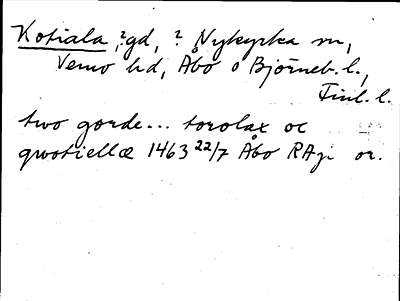 Kotiala, ?gd, ? Nykyrka sn,
Vemo hd, Åbo o Björneb. l.,
Finl. l.
two gorde... torolax oc
qwotiellæ 1463 22/7 Åbo RAp or.